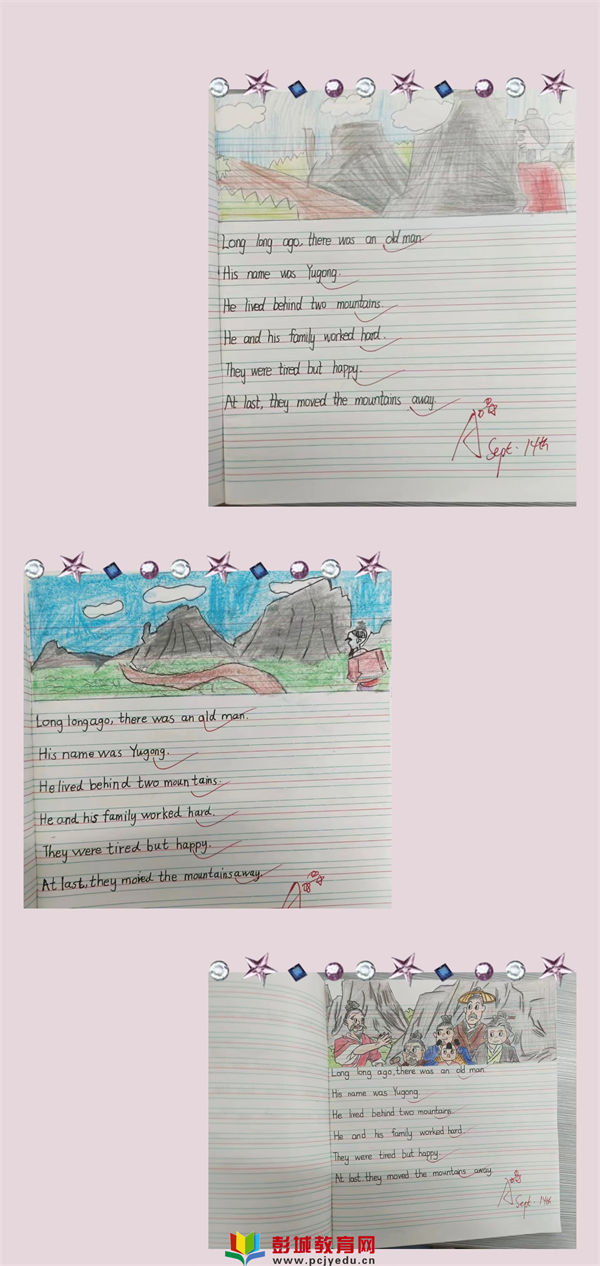 Long long ago, there was an old man.
His name was Yugong.
He lived behind two mountains.
He and his family worked hard.
They were tired but happy.
At last, they moved the mountains away.
A
Sept. 14th
Long long ago, there was an old man.
His name was Yugong.
He lived behind two mountains.
He and his family worked hard.
They were tired but happy.
At last, they moved the mountains away.
A
Long long ago, there was an old man.
His name was Yugong.
He lived behind two mountains.
He and his family worked hard.
They were tired but happy.
At last, they moved the mountains away.
A
Sept. 14th
彭城教育网
www.pcjyedu.cn